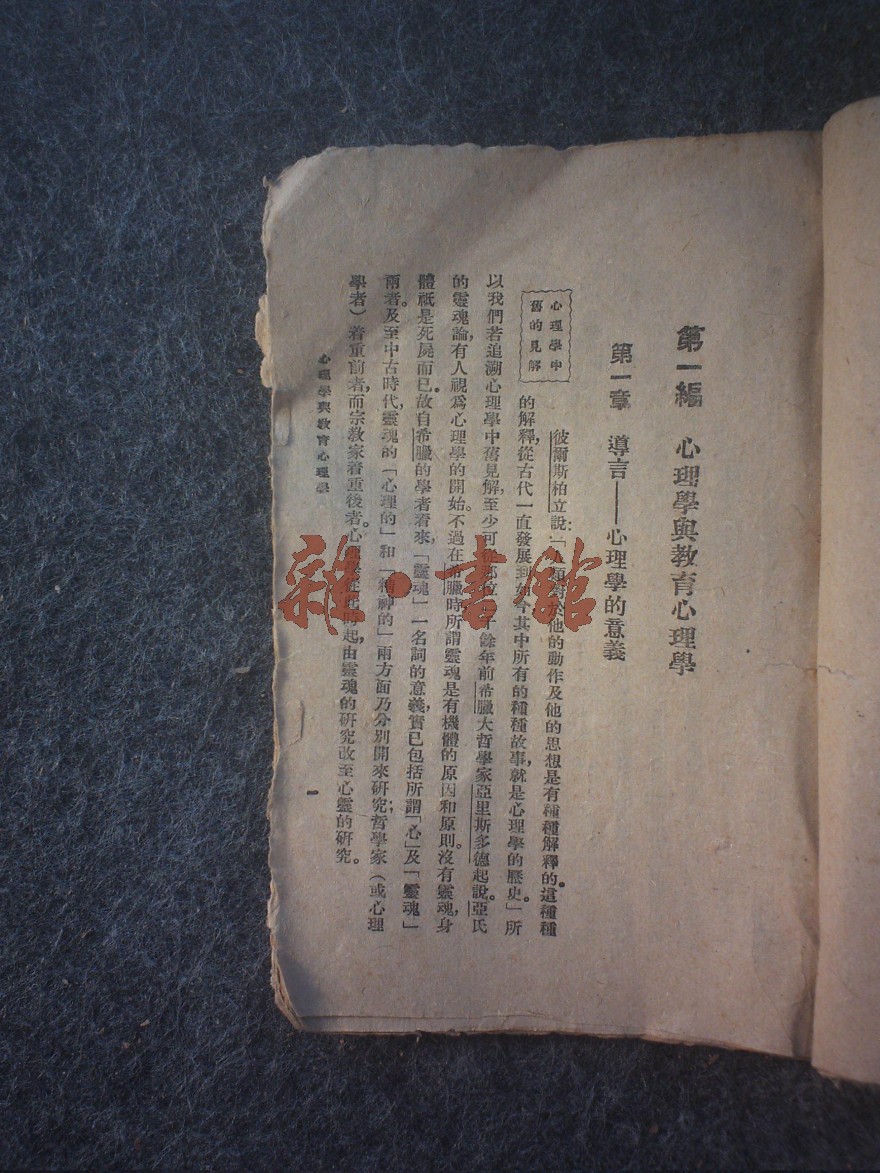 第一編　心理學與教育心理學
第一章　導言——心理學的意義
心理學中
舊的見解
彼爾斯柏立說：「人類對於他的動作及他的思想是有種種解釋的。這種種
的解釋，從古代一直發展到如今其中所有的種種故事，就是心理學的歷史。」所
以我們若追溯心理學中舊見解，至少可 那位 千餘年前希臘大哲學家亞里斯多德起說。亞氏
的靈魂論，有人視爲心理學的開始。不過在希臘時所謂靈魂是有機體的原因和原則。沒有靈魂，身
體祇是死屍而已。故自希臘的學者看來，「靈魂」一名詞的意義，實已包括所謂「心」及「靈魂」
兩者。及至中古時代，靈魂的「心理的」和「精神的」兩方面乃分別開來研究；哲學家（或心理
學者）着重前者，而宗教家着重後者。心理 起，由靈魂的研究改至心靈的研究。
心理學與教育心理學
一
雜·書館